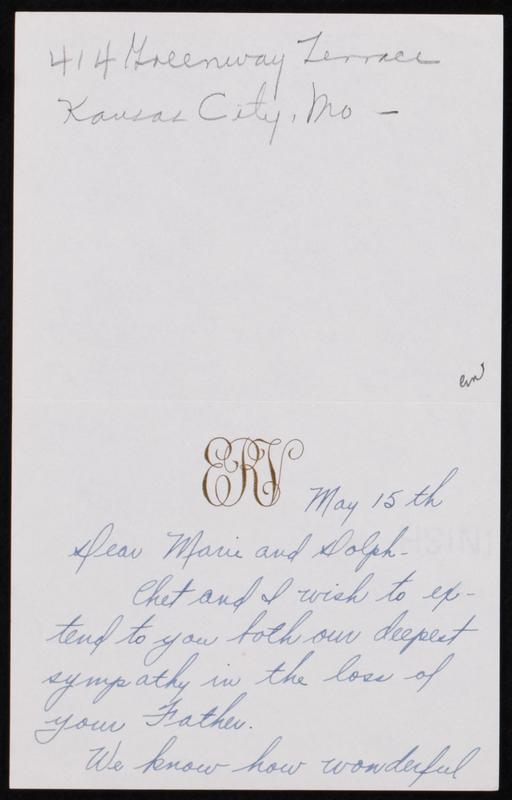 414 Greenway Terrace
Kansas City, Mo -
ERV
May 15th
Dear Marie and Dolph-
Chet and I wish to ex-
tend to you both our deepest
sympathy in the loss of
your Father.
We know how wonderful